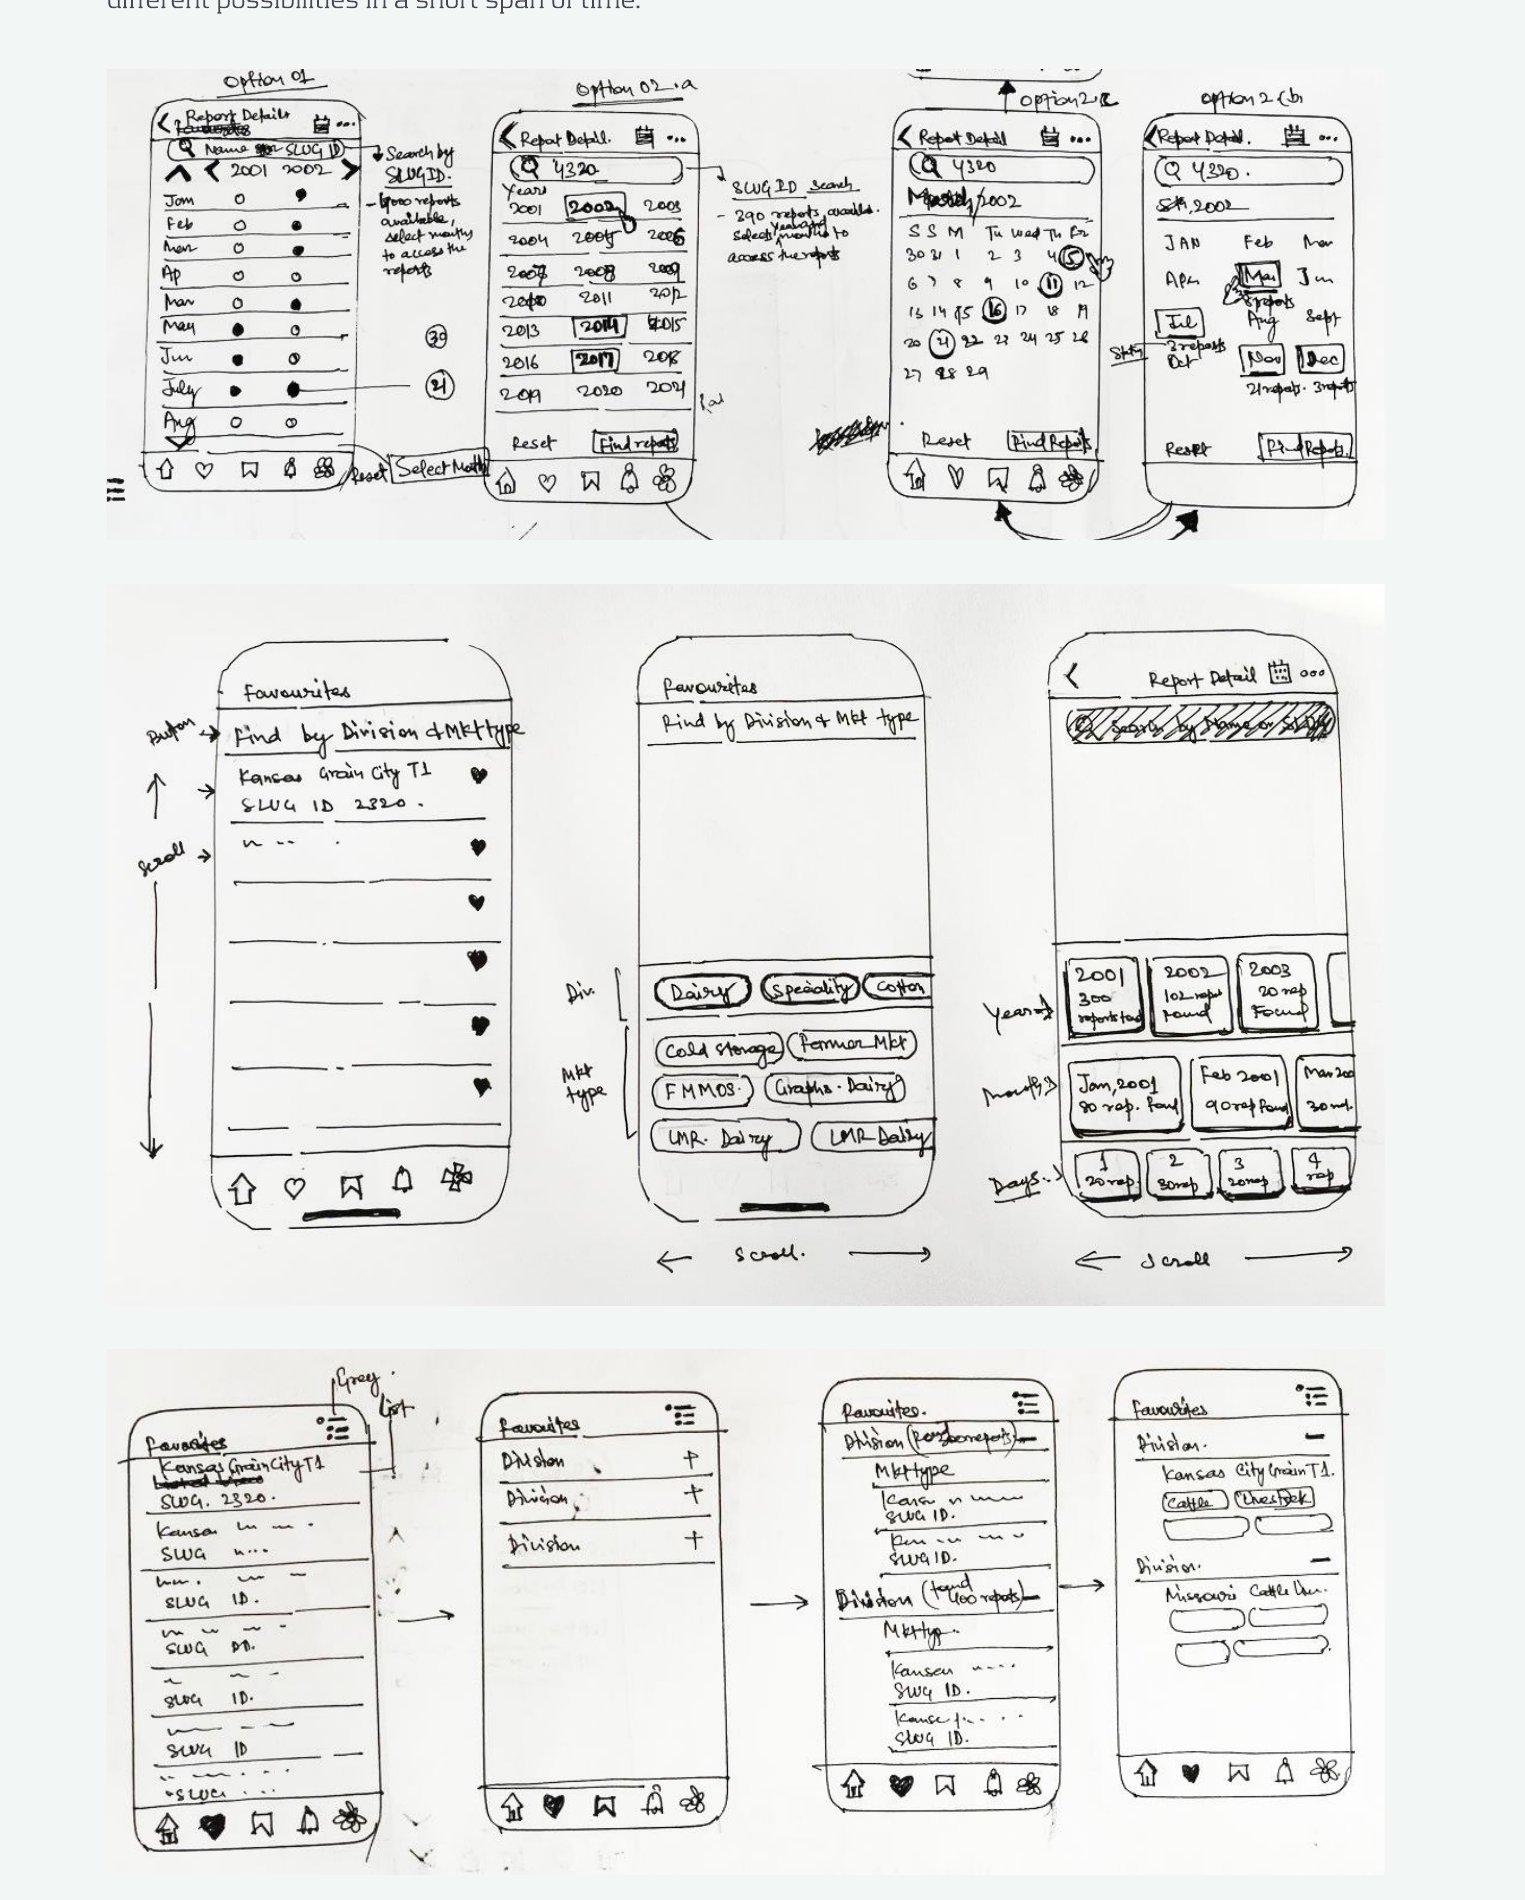 different possibilities in a short span of time.
Option 01
Report Details
Name SLUG ID
2001 2002
Jan
Feb
Mar
Ap
Mar
May
Jun
July
Aug
Search by
SLUG ID.
reports
available,
select months
to access the
reports
30
21
Reset
Select Month
Option 02.a
Report Detail.
4320
Years
2001 2002 2003
2004 2005 2006
2007 2008 2009
2010 2011 2012
2013 2014 2015
2016 2017 2018
2019 2020 2021
Reset Find reports
SLUG ID Search
- 390 reports availa.
Selects years and months to
access the reports
Option 2
Report Detail
4320
March/2002
S S M Tu Wed Th Fr
30 31 1 2 3 4 5
6 7 8 9 10 11 12
13 14 15 16 17 18 19
20 21 22 23 24 25 26
27 28 29
Reset Find Reports
Option 2 (b)
Report Detail.
4320.
2002
JAN Feb Mar
Apr May Jun
8 reports
Jul Aug Sept
3 reports
Oct Nov Dec
21 reports. 3 reports
Reset Find Reports.
Favourites
Button
Find by Division & Mkt type
Kansas Grain City T1
SLUG ID 2320.
Scroll
Favourites
Find by Division & Mkt type
Div.
Dairy Speciality Cotton
Mkt
type
Cold Storage Farmer Mkt
FMMOS. Graphs. Dairy
LMR. Dairy LMR Dairy
Scroll.
Report Detail
Search by Name or SLUG
Years
2001
300
reports found
2002
102 report
Found
2003
20 rep
Found
Months
Jan, 2001
80 rep. Found
Feb 2001
90 rep Found
Mar 200
30 rep.
Days
1
20 rep.
2
30 rep
3
20 rep
4
rep
Scroll
Grey.
List
Favorites
Kansas Grain City T1
SLUG. 2320.
Kansas
SLUG
SLUG ID.
SLUG ID.
SLUG ID.
SLUG ID
SLUG
Favourites
Division +
Division +
Division +
Favourites.
Division
Mkt type
SLUG ID.
SLUG ID.
Division (found
400 reports)
Mkt typ.
Kansas
SLUG ID.
SLUG ID.
Favourites
Division.
Kansas City Grain T1.
Cattle Livestock
Division.
Missouri Cattle